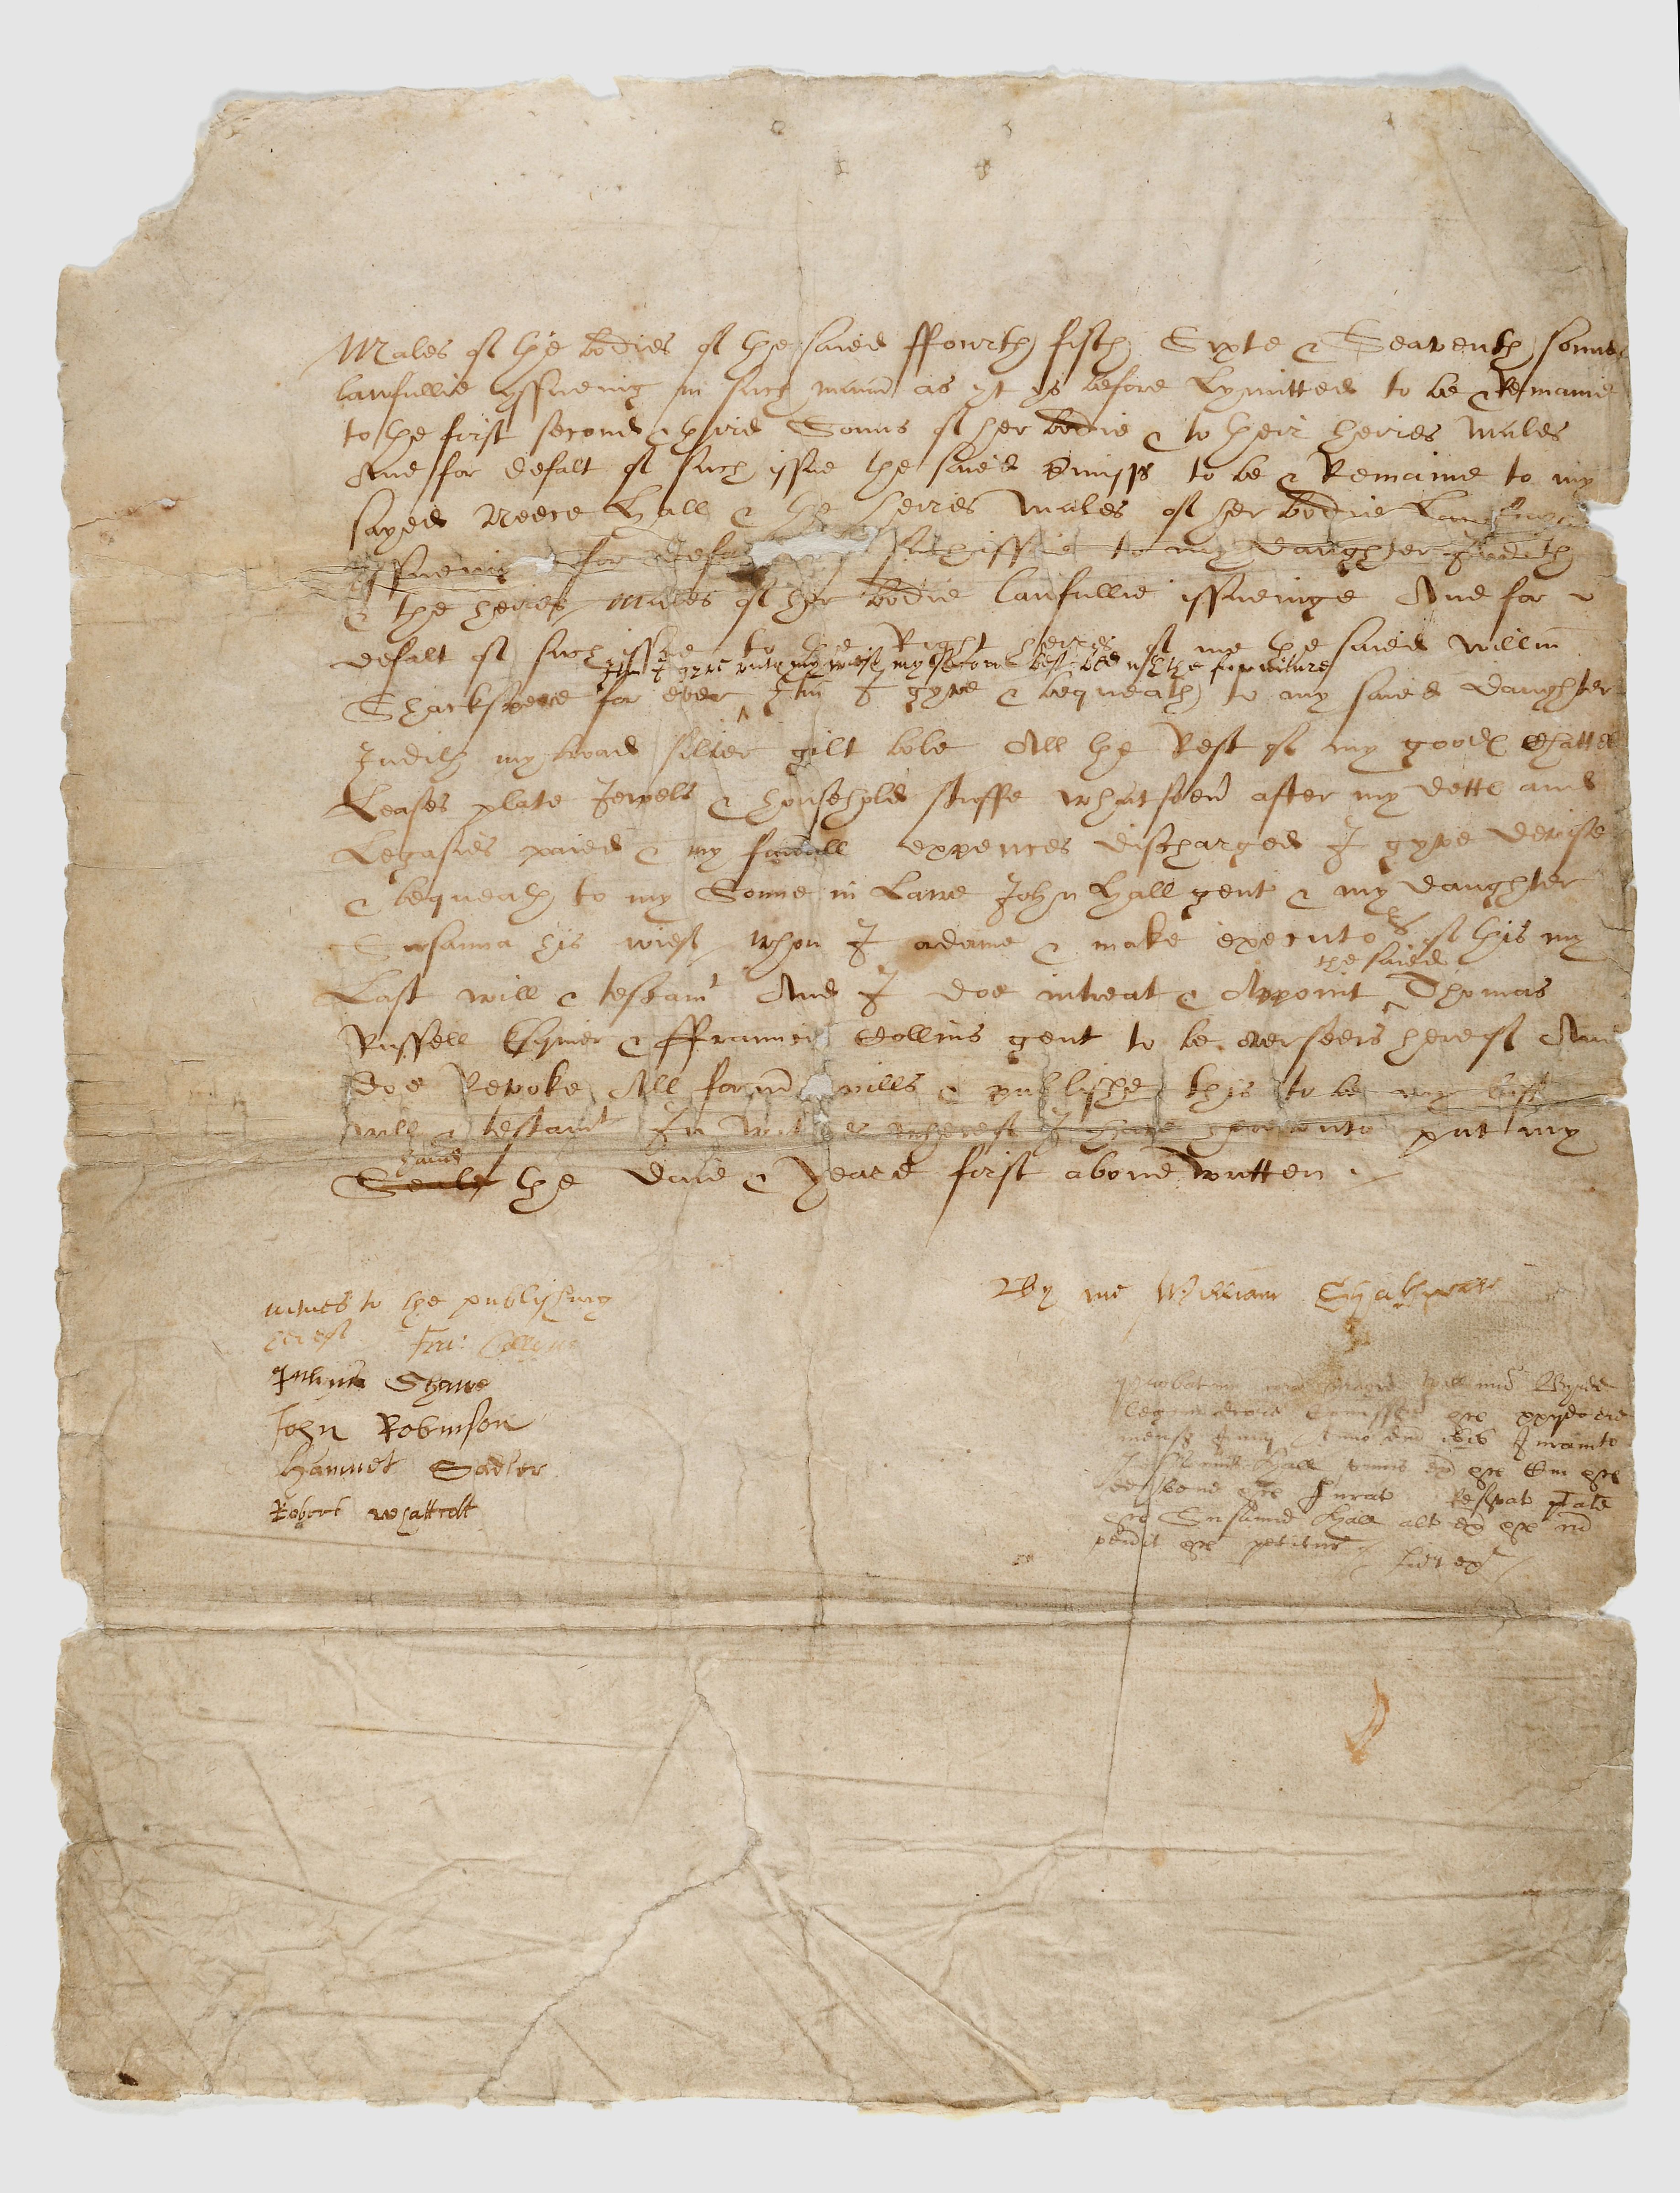 Males of the bodies of the saied ffourth fifth Sixte & Seaventh sonnes
lawfullie yssueing in such mann as yt ys before Lymitted to be & Remaine
to the first second & third Sonns of her bodie & to their heires Males
And for defalt of such issue the said pmiss to be & Remaine to my
sayed Neece Hall & the heires Males of her bodie Lawfully
yssueing for defa such issue to my daughter Judith
& the heires Males of her bodie lawfullie issueinge And for
defalt of such issue to the Right heires of me the saied Willm
Itm I gyve unto my wief my second best bed with the furniture
Shackspeare for ever Itm I gyve & bequeath to my saied daughter
Judith my broad silver gilt bole All the Rest of my goodes Chattel
Leases plate Jewels & household stuffe whatsoeu after my dettes and
Legasies paied & my funall expences discharged I gyve devise
& bequeath to my Sonne in Lawe John Hall gent & my daughter
Susanna his wief whom I ordaine & make executors of this my
the saied
Last will & testamt And I doe intreat & Appoint Thomas
Russell Esquier & ffrauncis Collins gent to be overseers hereof And
doe Revoke All formr wills & publishe this to be my last
will & testamt In witnes whereof I have hereunto put my
hand
Seale the daie & Yeare first above written
By me William Shakspeare
witnes to the publishing
hereof Fra: Collyns
Julyus Shawe
John Robinson
Hamnet Sadler
Robert Whattcott
Probatum Willmo Byrde
legum dcore Comissar xxijdo die
mensis Junij Anno dni 1616 Juramto
Johannis Hall unius ex
de bene Jurat Resvat ptate
Susanne Hall alt ex
petitur